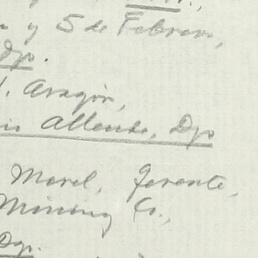 y 5 de Febrero,
Dgo.
Aragón,
Allende, Dgo
Morel, Gerente,
Mining Co.,
Dgo.